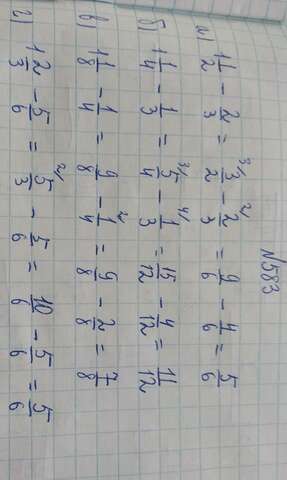 №583
а) 1 1/2 - 2/3 = 3/2 - 2/3 = 9/6 - 4/6 = 5/6
б) 1 1/4 - 1/3 = 5/4 - 1/3 = 15/12 - 4/12 = 11/12
в) 1 1/8 - 1/4 = 9/8 - 1/4 = 9/8 - 2/8 = 7/8
г) 1 2/3 - 5/6 = 5/3 - 5/6 = 10/6 - 5/6 = 5/6